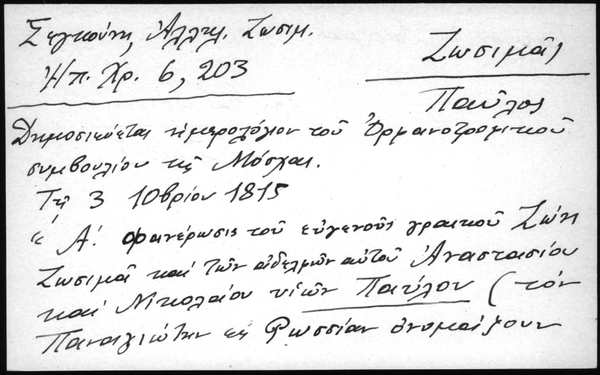 Σιγκούνη, Ἀλληλ. Ζωσιμ.
Ἠπ. Χρ. 6, 203
Ζωσιμᾶς
Παῦλος
Δημοσιεύεται ἡμερολόγιον τοῦ Ὀρφανοτροφικοῦ
συμβουλίου τῆς Μόσχας.
Τῇ 3 10βρίου 1815
" Α΄. Φανέρωσις τοῦ εὐγενοῦς γραικοῦ Ζώη
Ζωσιμᾶ καί τῶν ἀδελφῶν αὐτοῦ Ἀναστασίου
καί Νικολαίου υἱῶν Παύλου (τόν
Παναγιώτην εἰς Ρωσσίαν ὀνομάζουν